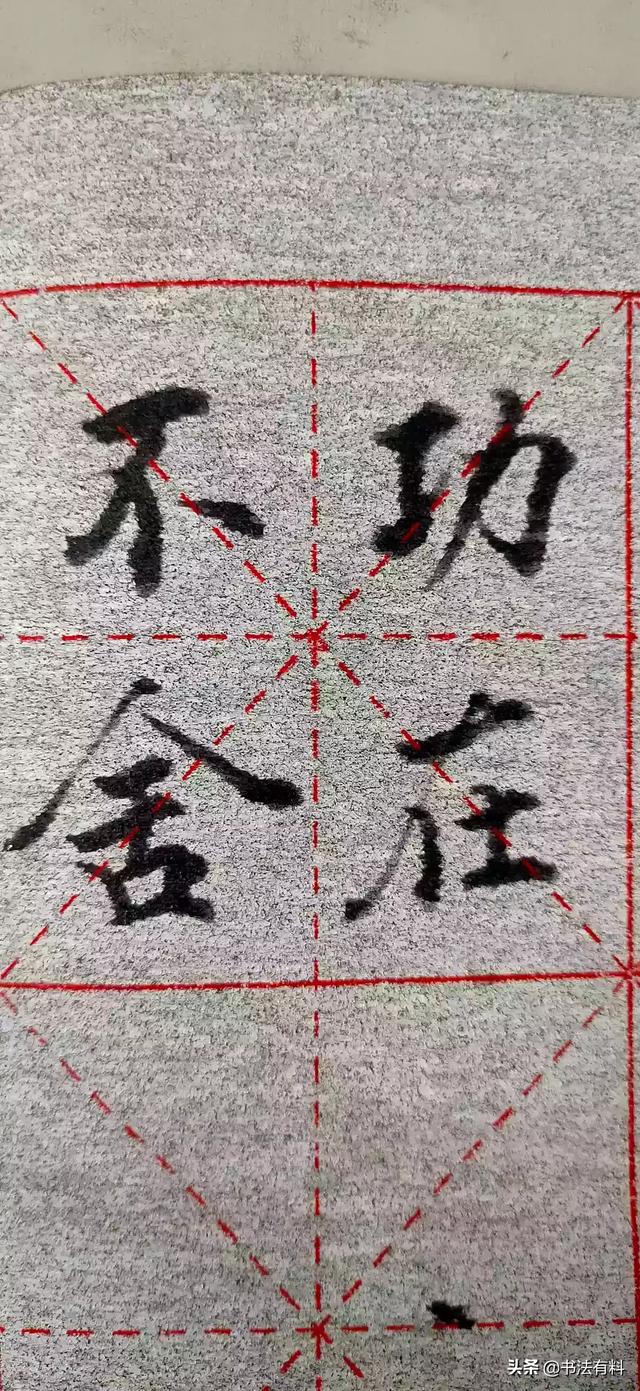 功在
不舍
头条 @书法有料